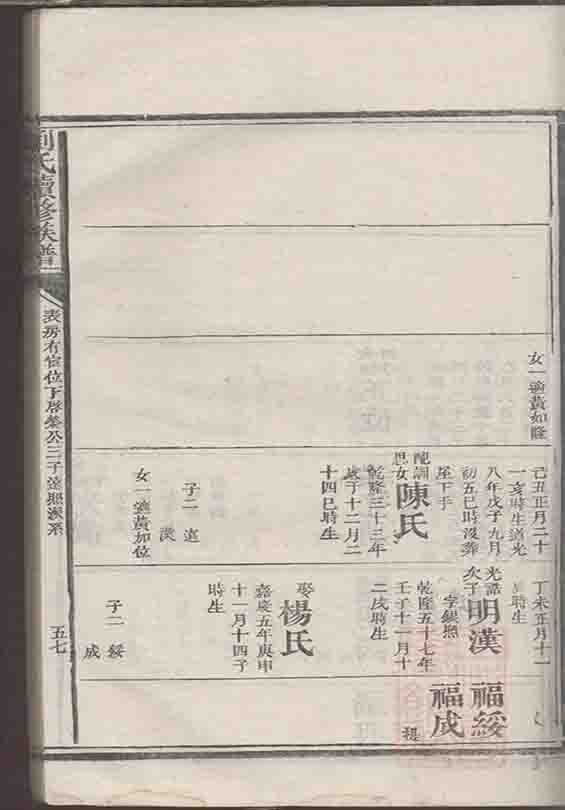 劉氏續修族譜
表房有宦位下啓榮公三子遠照漢系
五七
女一適黃如隆
己丑正月二十
一亥時生道光
八年戊子九月
初五巳時沒葬
屋下手
配訓
思女
陳氏
乾隆三十三年
歲子十二月二
十四巳時生
子二 遠
漢
女一適黃如位
丁未正月十一
時生
光譜
次子
明漢
字銀照
乾隆五十七年
壬子十一月十
二戌時生
娶
楊氏
嘉慶五年庚申
十一月十四子
時生
子二 綏
成
福綏
福成